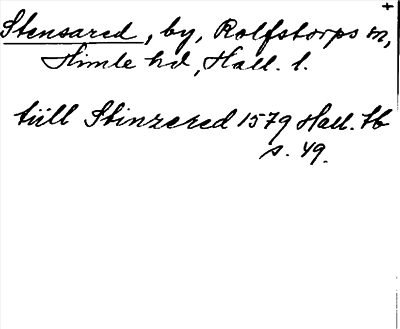 +
Stensared, by, Rolfstorps sn,
Himle hd, Hall. l.
tiill Stinzered 1579 Hall. tb
s. 49.